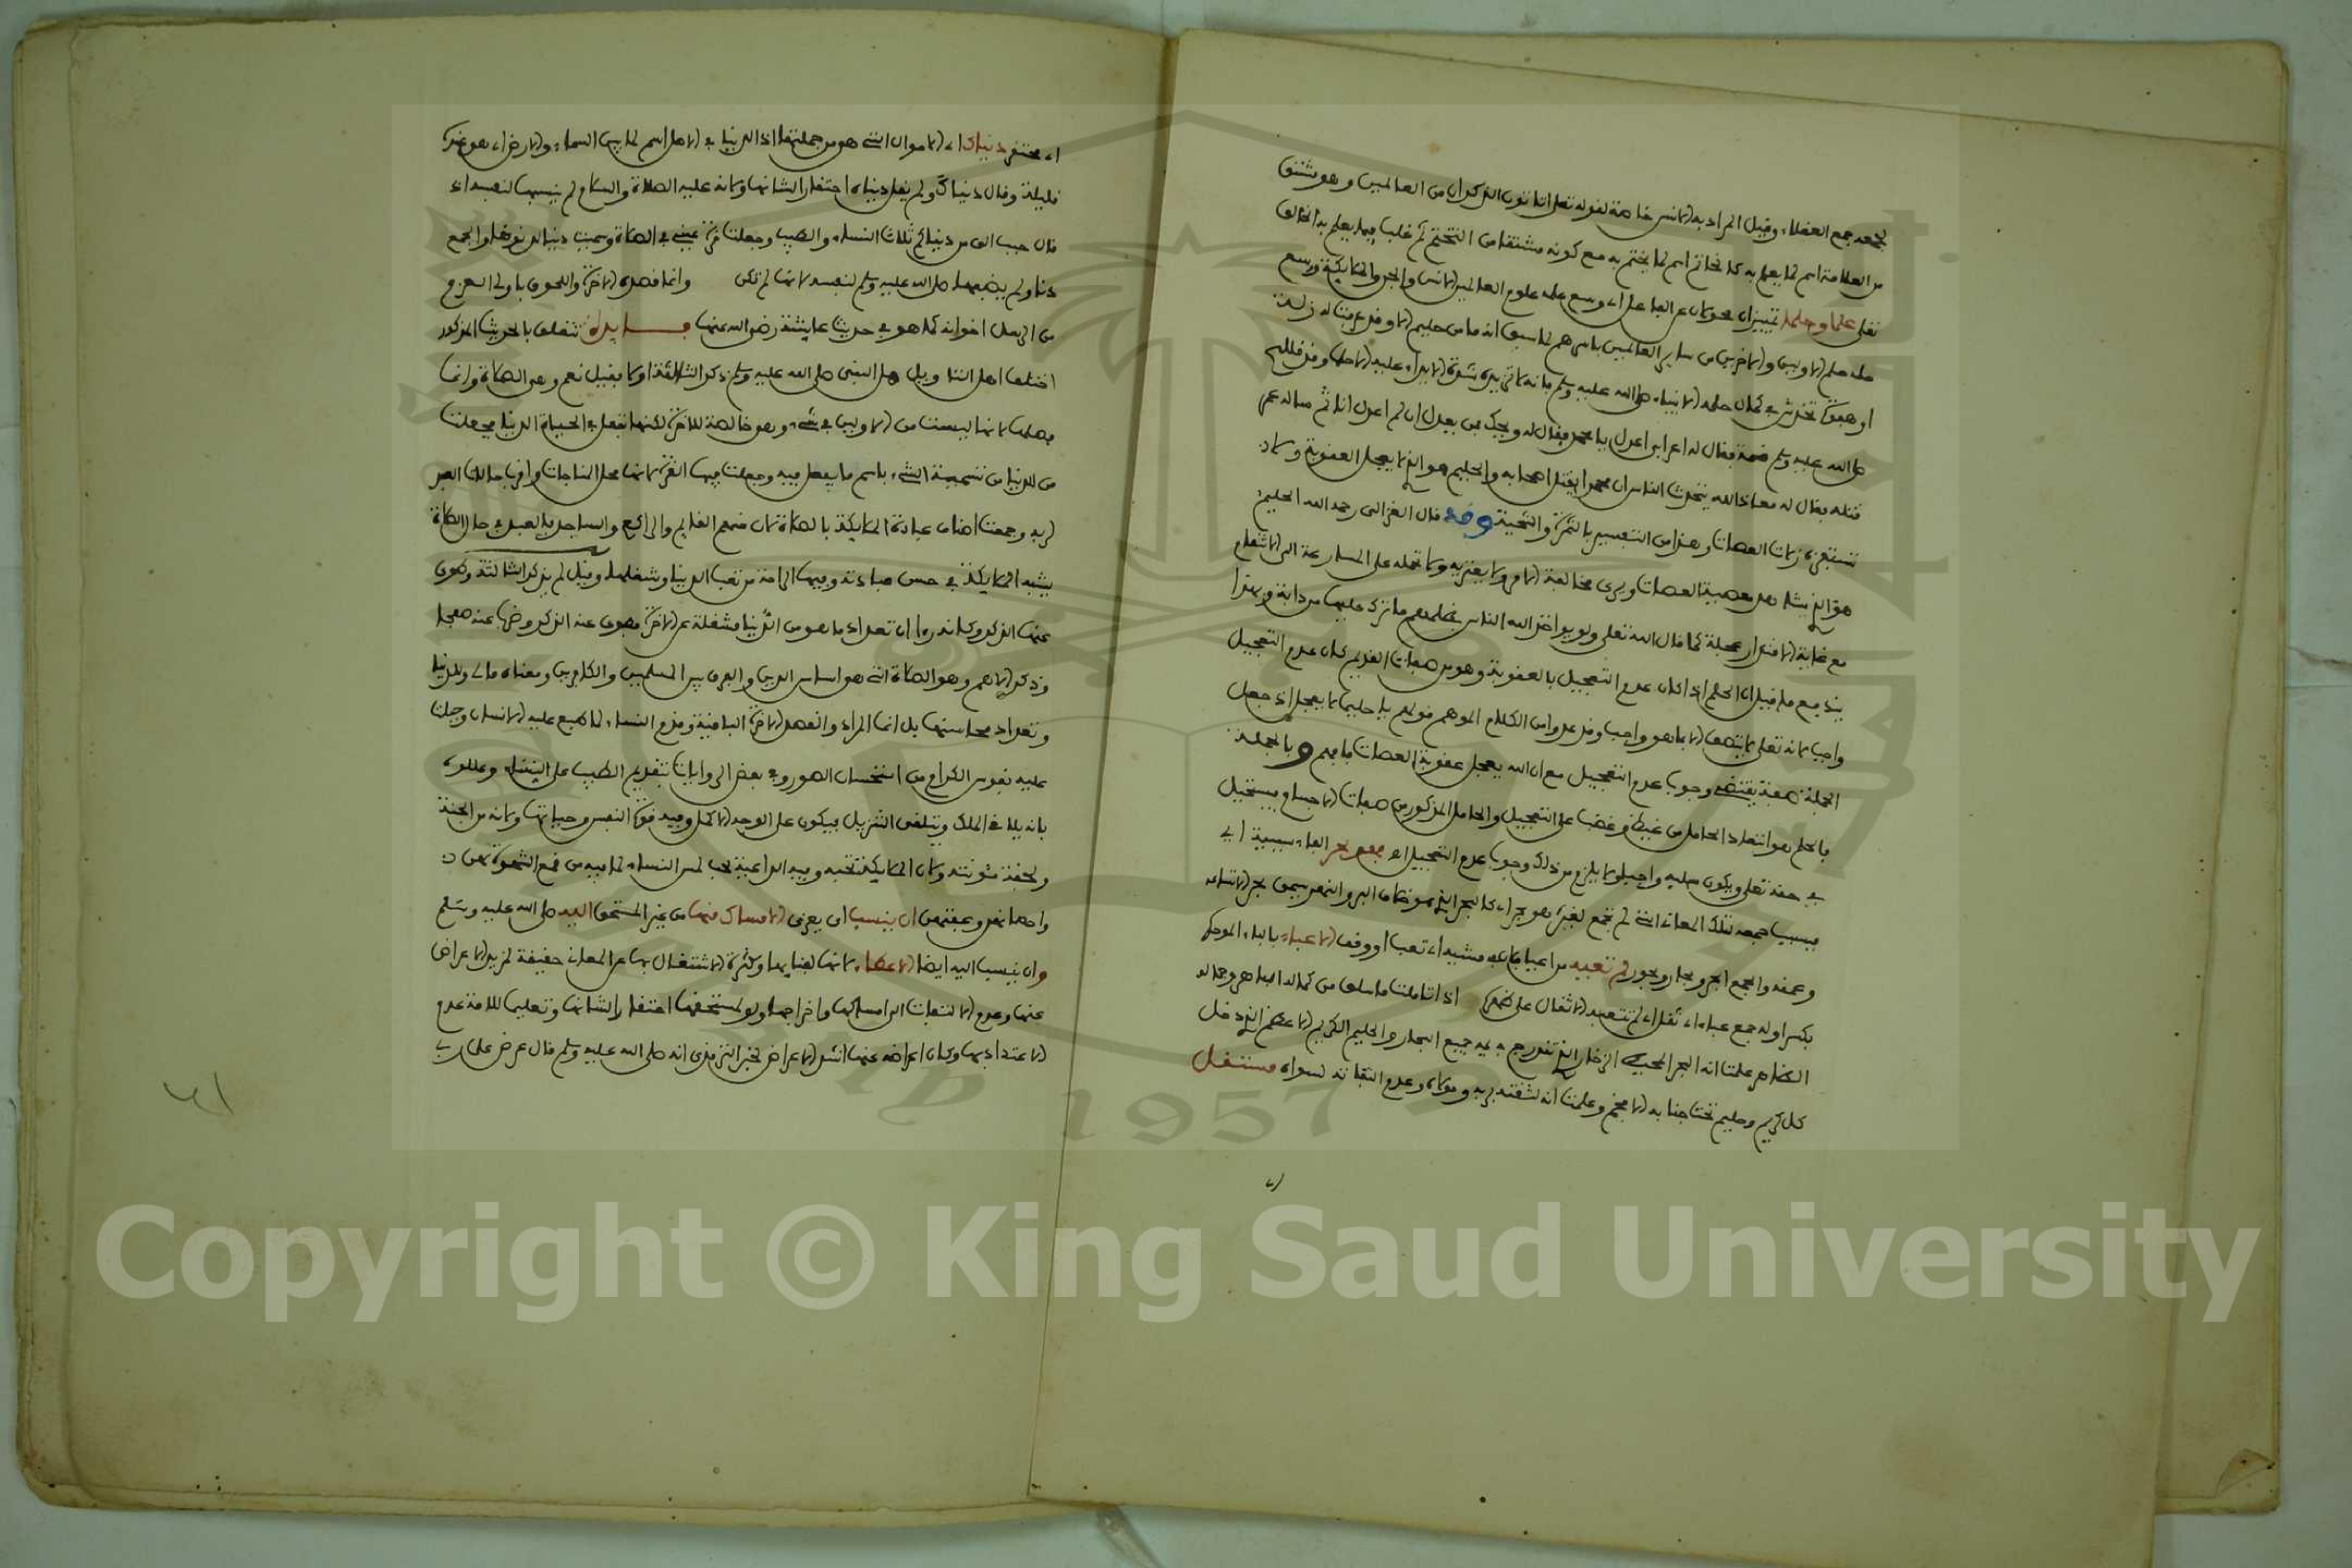 لجمعه جمع العقلاء وقيل المراد به الانس خاصة لقوله تعلى اتاتون الذكران من العالمين وهو مشتق
من العلامة اسم لما يعلم به كالخاتم اسم لما يختم به مع كونه مشتقا من التختم ثم غلب فيما يعلم به الخالق
تعلى علما وحلما تمييزان محولان عن الفاعل اي وسع علمه علوم العالمين الانس والجن والملايكة ووسع
حلمه حلم الاولين والاخرين من ساير العالمين باسرهم لما سبق انه ما من حليم الا وقد عرفت له زلة
او هفوة تخدش في كمال حلمه الا نبينا صلى الله عليه وسلم فانه لا تزيده شدة الايذاء عليه الا حلما وقد
صلى الله عليه وسلم قسمة فقال له اعرابي اعدل يا محمد فقال له ويحك من يعدل ان لم اعدل انا ثم ساله عمر
قتله فقال له معاذ الله يتحدث الناس ان محمدا يقتل اصحابه والحليم هو الذي لا يعجل العقوبة ولا
تستفزه زلات العصات وهذا من التفسير بالثمرة والنتيجة وقد قال الغزالي رحمه الله الحليم
هو الذي يشاهد معصية العصات ويرى مخالفة الامر ولا يعتريه ولا تحمله على المسارعة الى الانتقام
مع غاية الاقتدار عجلة كما قال الله تعلى ولو يواخذ الله الناس بظلمهم ما ترك عليها من دابة وبهذا
يندفع ما قيل ان الحلم اذا كان عدم التعجيل بالعقوبة وهو من صفات القديم كان عدم التعجيل
واجبا لانه تعلى لا يتصف الا بما هو واجب وقد عدوا من الكلام الموهم قولهم يا حليما لا يعجل اذ جعل
الجملة صفة يقتضي وجوب عدم التعجيل مع ان الله يعجل عقوبة العصات فافهم وبالجملة
فالحلم هو انتفاء الحامل من غيظ وغضب على التعجيل والحامل المذكور من صفات الاجسام ويستحيل
في حقه تعلى ويكون سلبه واجبا ولا يلزم من ذلك وجوب عدم التعجيل اه فهو بحر الفاء سببية اي
فبسبب جمعه تلك المعاني التي لم تجمع لغيره هو بحر اي كالبحر الذي هو خلاف البر وانما سمي بحرا لاتساعه
وعمقه والجمع ابحر وبحار وبحور لم تعيه من اعيا فلان مشيه اي تعب او وقف الاعباء بالباء الموحدة
بكسر اوله جمع عباء اي ثقل اي لم تتعبه الاثقال على كثرتها اذا تاملت ما سلف من كماله الباهر وجماله
الظاهر علمت انه البحر المحيط الزخار الذي تندرج فيه جميع البحار والحليم الكريم الاعظم الذي دخل
كل كريم وحليم تحت جنابه الافخم وعلمت انه لثقته بربه ومولاه وعدم التفاته لسواه مستقل
اي محتقر دنياك اي الاموال التي هو من جملتها اذ الدنيا في الاصل اسم لما بين السماء والارض اي هو عنده
قليلة وقال دنياك ولم يقل دنياه احتقارا لشانها ولانه عليه الصلاة والسلام لم ينسبها لنفسه اذ
قال حبب الي من دنياكم ثلاث النساء والطيب وجعلت قرة عيني في الصلاة وسميت دنيا لدنوها والجمع
دنا ولم يضفها صلى الله عليه وسلم لنفسه لانها لم تكن وانما قصده الاخرة واللحوق باولى العزم
من الرسل اخوانه كما هو في حديث عايشة رضي الله عنها فايدة تتعلق بالحديث المذكور
اختلف اهل التاويل هل النبي صلى الله عليه وسلم ذكر الثالثة او لا فقيل نعم وهي الصلاة وانما
فصلها لانها ليست من الاولين في شيء وهو خالصة للاخرة لكنها تفعل في الحياة الدنيا فجعلت
من الدنيا من تسمية الشيء باسم ما يفعل فيه وجعلت فيها القرة لانها محل المناجات واقرب ما للعبد
لربه وجمعت اصناف عبادة الملايكة بالصلاة لان منهم القايم والراكع والساجد فالعبد في حال الصلاة
يشبه الملايكة في حسن عبادته وفيها الراحة من تعب الدنيا وشغلها وقيل لم يذكر الثالثة وسكوت
عنها الذكر وكانه راى ان تعداد ما هو من الدنيا مشغلة عن الاخرة فصون عنه الذكر وضها عنه صفحا
وذكر الاهم وهو الصلاة التي هو اساس الدين والفرق بين المسلمين والكافرين ومعناه مالي وللدنيا
وتعداد محاسنها بل انما المراد والقصد الاخرة الباقية وقدم النساء لما طبع عليه الانسان وجلت
عليه نفوس الكرام من استحسان الصور وفي بعض الروايات تقديم الطيب على النساء وعللوه
بانه يلاقي الملك ويتلقى التنزيل فيكون على الوجه الاكمل وفيه قوة النفس وحياتها ولانه من الجنة
ولخفة مئونته ولان الملايكة تحبه وفيه الداعية لحب لمس النساء لما فيه من قمع الشهوة
واحصانهن وعفتهن ان ينسب اي يعزى الامساك منها من غير المستحق اليه صلى الله عليه وسلم
وان ينسب اليه ايضا الاعطاء لانها لفنايها وكثرة الاشتغال بها عن المعاني حقيقة لمزيد الاعراض
عنها وعدم الالتفات الى امساكها واخراجها ولو لمستحقها احتقارا لشانها وتعليما للامة عدم
الاعتداد بها وكان اعراضه عنها اشد الاعراض لخبر الترمذي انه صلى الله عليه وسلم قال عرض على ربي